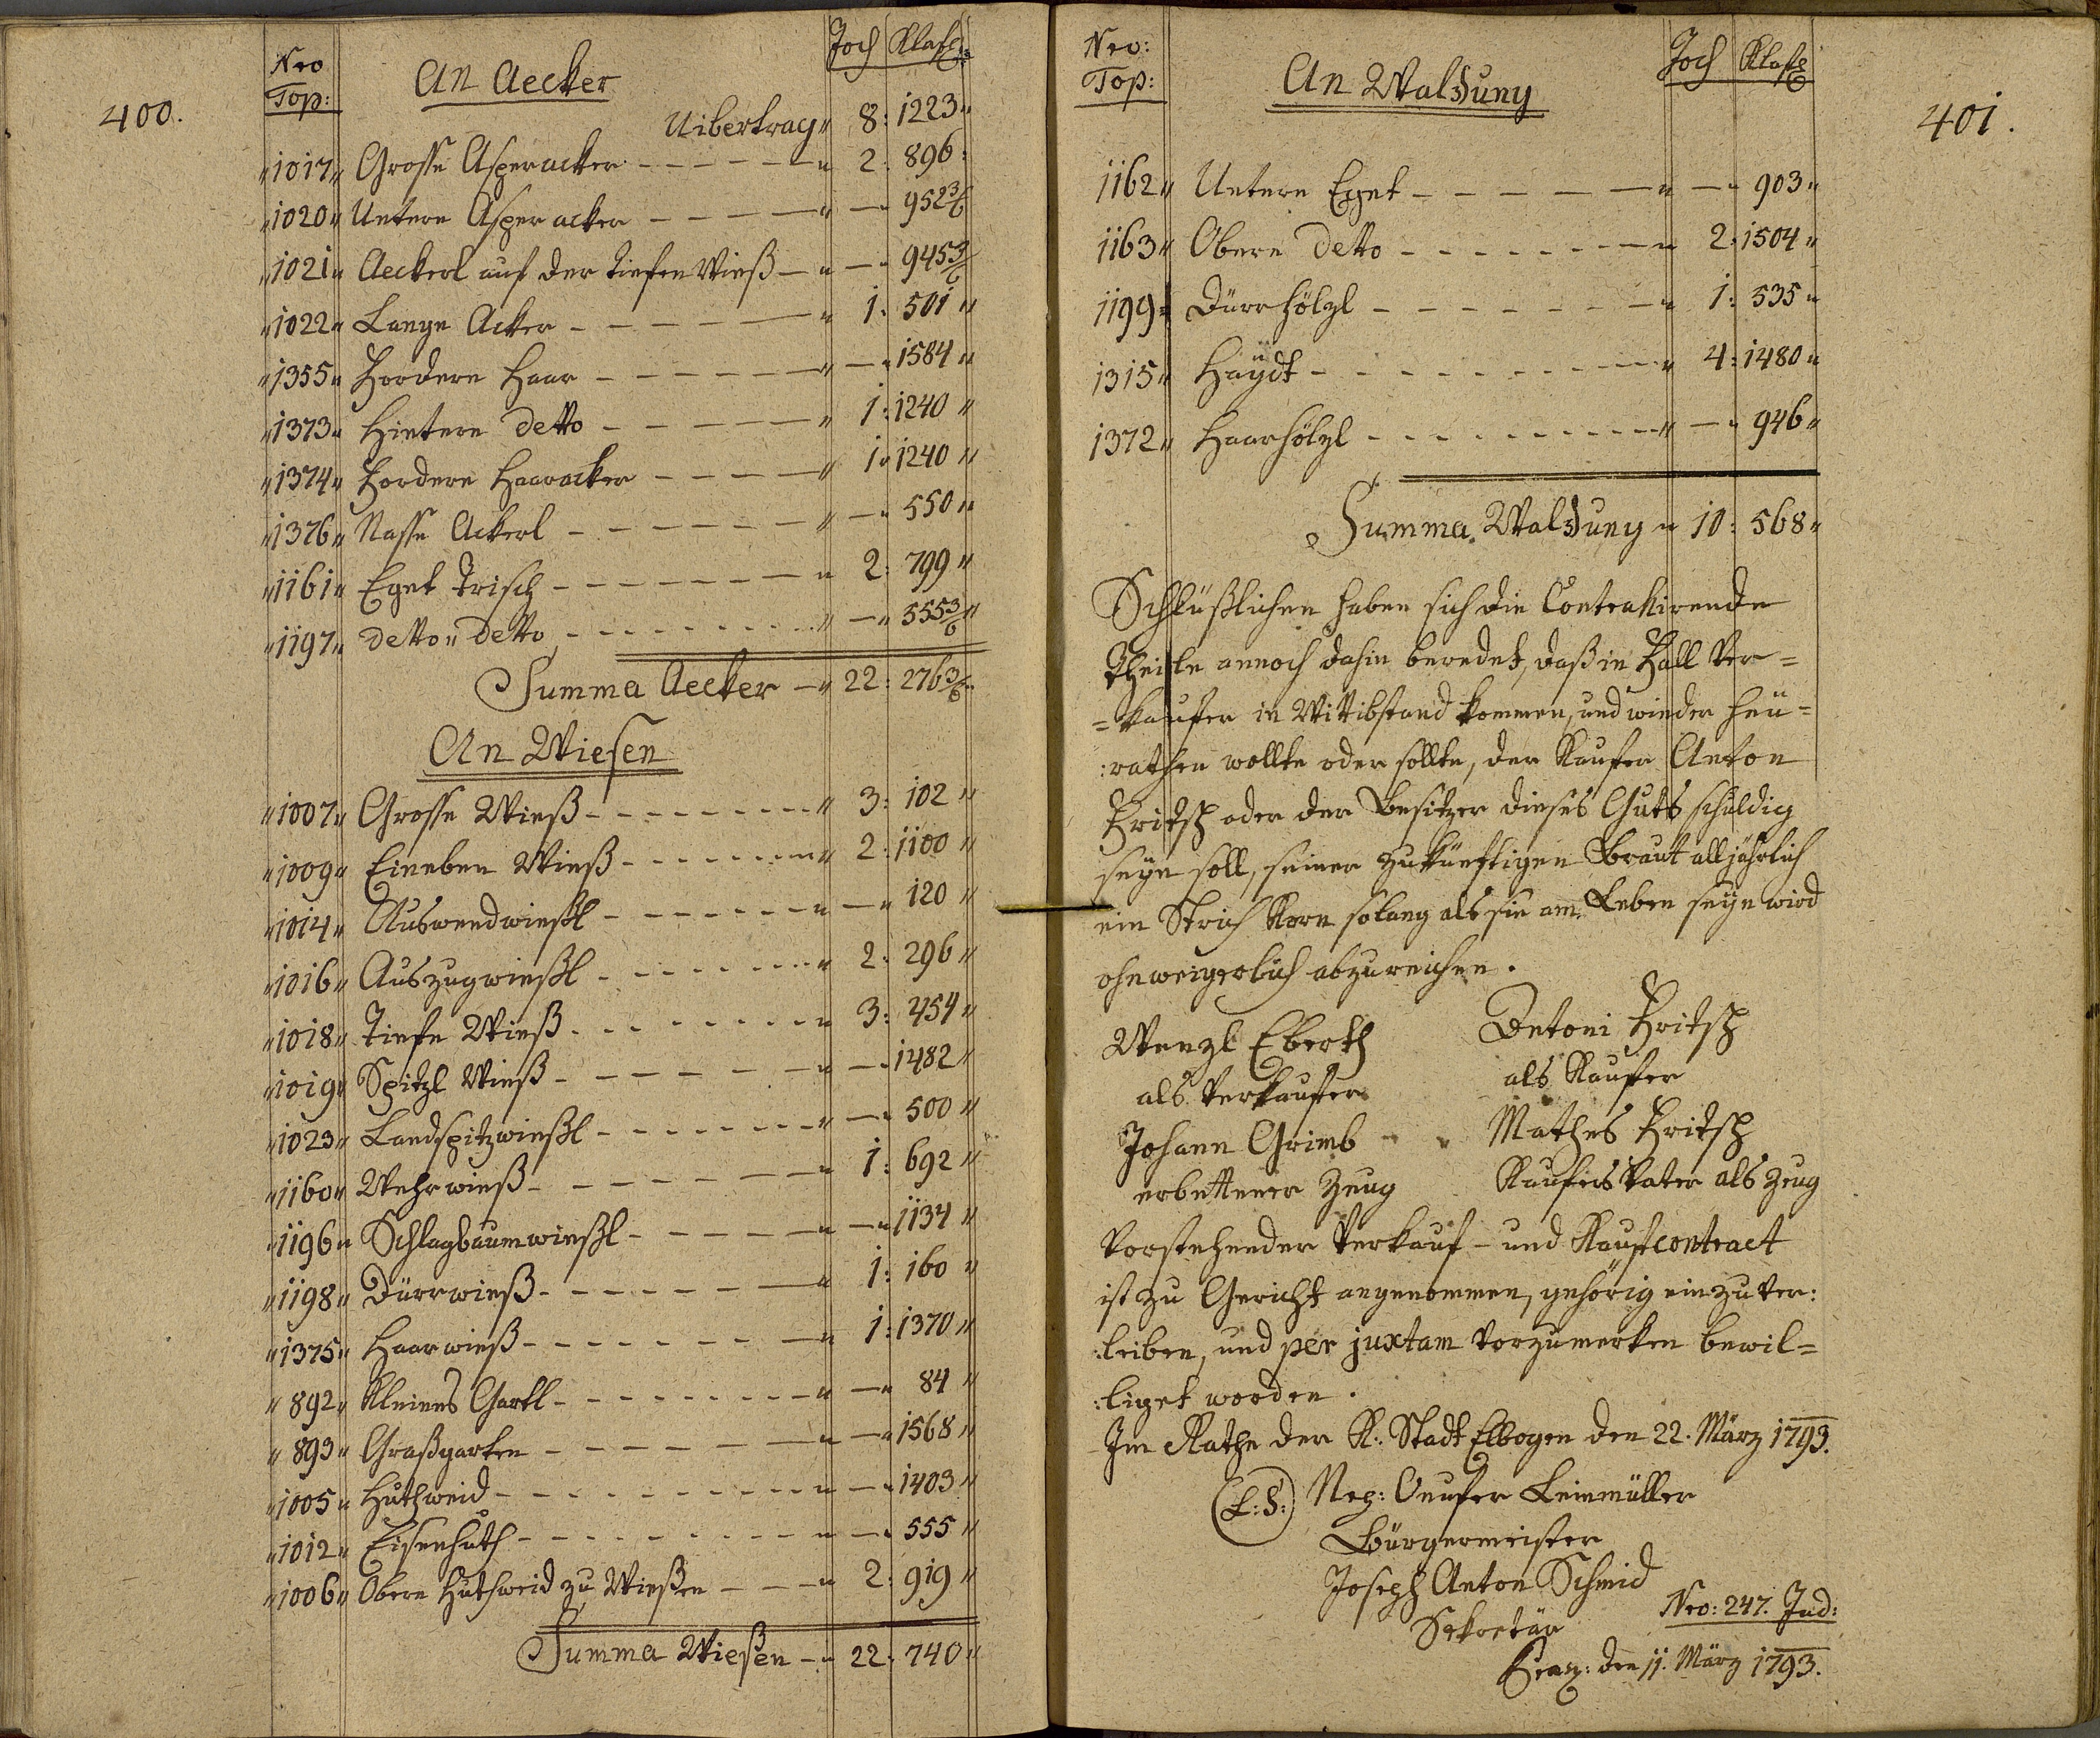 400.
Nro Top: An Aecker Joch Klaft:
Uibertrag 8: 1223 "
" 1017 " Grosse Asperacker - - - - - - " 2: 896:
" 1020 " Untere Asperacker - - - - - " — " 952 3/6
" 1021 " Aeckerl auf der tiefen Wieß — " — " 945 3/6
" 1022 " Lange Acker - - - - - - " 1: 501 "
" 1355 " Fordere Haar - - - - - - " — " 1584 "
" 1373 " Hintere detto - - - - - " 1: 1240 "
" 1374 " Fordere Haaracker - - - - " 1 " 1240 "
" 1376 " Nasse Ackerl - - - - - - " — " 550 "
" 1161 " Eget Trisch - - - - - - - " 2: 799 "
" 1197 " detto " detto - - - - - - - - " — " 555 3/6 "
Summa Aecker — " 22: 276 3/6 "
An Wiesen
" 1007 " Grosse Wieß - - - - - - - - " 3: 102 "
" 1009 " Eineben Wieß - - - - - - - " 2: 1100 "
" 1014 " Auswendwießl - - - - - - - " — " 120 "
" 1016 " Auszugwießl - - - - - - - " 2: 296 "
" 1018 " Tiefe Wieß - - - - - - - - " 3: 454 "
" 1019 " Spitzl Wieß - - - - - - " — " 1482 "
" 1023 " Landspitzwießl - - - - - - - " — " 500 "
" 1160 " Wehrwieß - - - - - - - " 1: 692 "
" 1196 " Schlagbaumwießl - - - - - " — " 1134 "
" 1198 " Dürrwieß - - - - - - - " 1: 160 "
" 1375 " Haarwieß - - - - - - - - " 1: 1370 "
" 892 " Kleines Gartl - - - - - - - - " — " 84 "
" 893 " Graßgarten - - - - - - - " — " 1568 "
" 1005 " Huthweid - - - - - - - - - " — " 1403 "
" 1012 " Eisenhuth - - - - - - - - " — " 555 "
" 1006 " Obere Huthweid zu Wießen - - - " 2: 919 "
Summa Wießen — " 22: 740 "
401.
Nro: Top: An Waldung Joch Klaft
1162 " Untere Eget - - - - - - " — " 903 "
1163 " Obere detto - - - - - - - " 2: 1504 "
1199 " Dürrhölzl - - - - - - - " 1: 535 "
1315 " Haÿdt - - - - - - - - - " 4: 1480 "
1372 " Haarhölzl - - - - - - - - - " — " 946 "
Summa Waldung " 10: 568 "
Schlüßlichen haben sich die Contrahirende
Theile annoch dahin beredet, daß in Fall Ver=
=kaufer in Wittibstand kommen, und wieder heu=
:rathen wollte oder sollte, der Kaufer Anton
Fritsch oder der Besitzer dieses Guts schuldig
seÿn soll, seiner zukünftigen Braut alljährlich
ein Strich Korn solang als sie am Leben seÿn wird
ohnweigerlich abzureichen.
Wenzl Eberth Antoni Fritsch
als Verkaufer als Kaufer
Johann Grimb Mathes Fritsch
erbettener Zeug Kaufers Vater als Zeug
Vorstehender Verkauf- und Kaufcontract
ist zu Gericht angenommen, gehörig einzuver:
:leiben, und per juxtam vorzumerken bewil=
:liget worden.
Im Rathe der K. Stadt Elbogen den 22. März 1793.
(L:S:) Onufer Leinmüller
Bürgermeister
Joseph Anton Schmid
Sekretär Nro: 247. Jud:
den 11. März 1793.